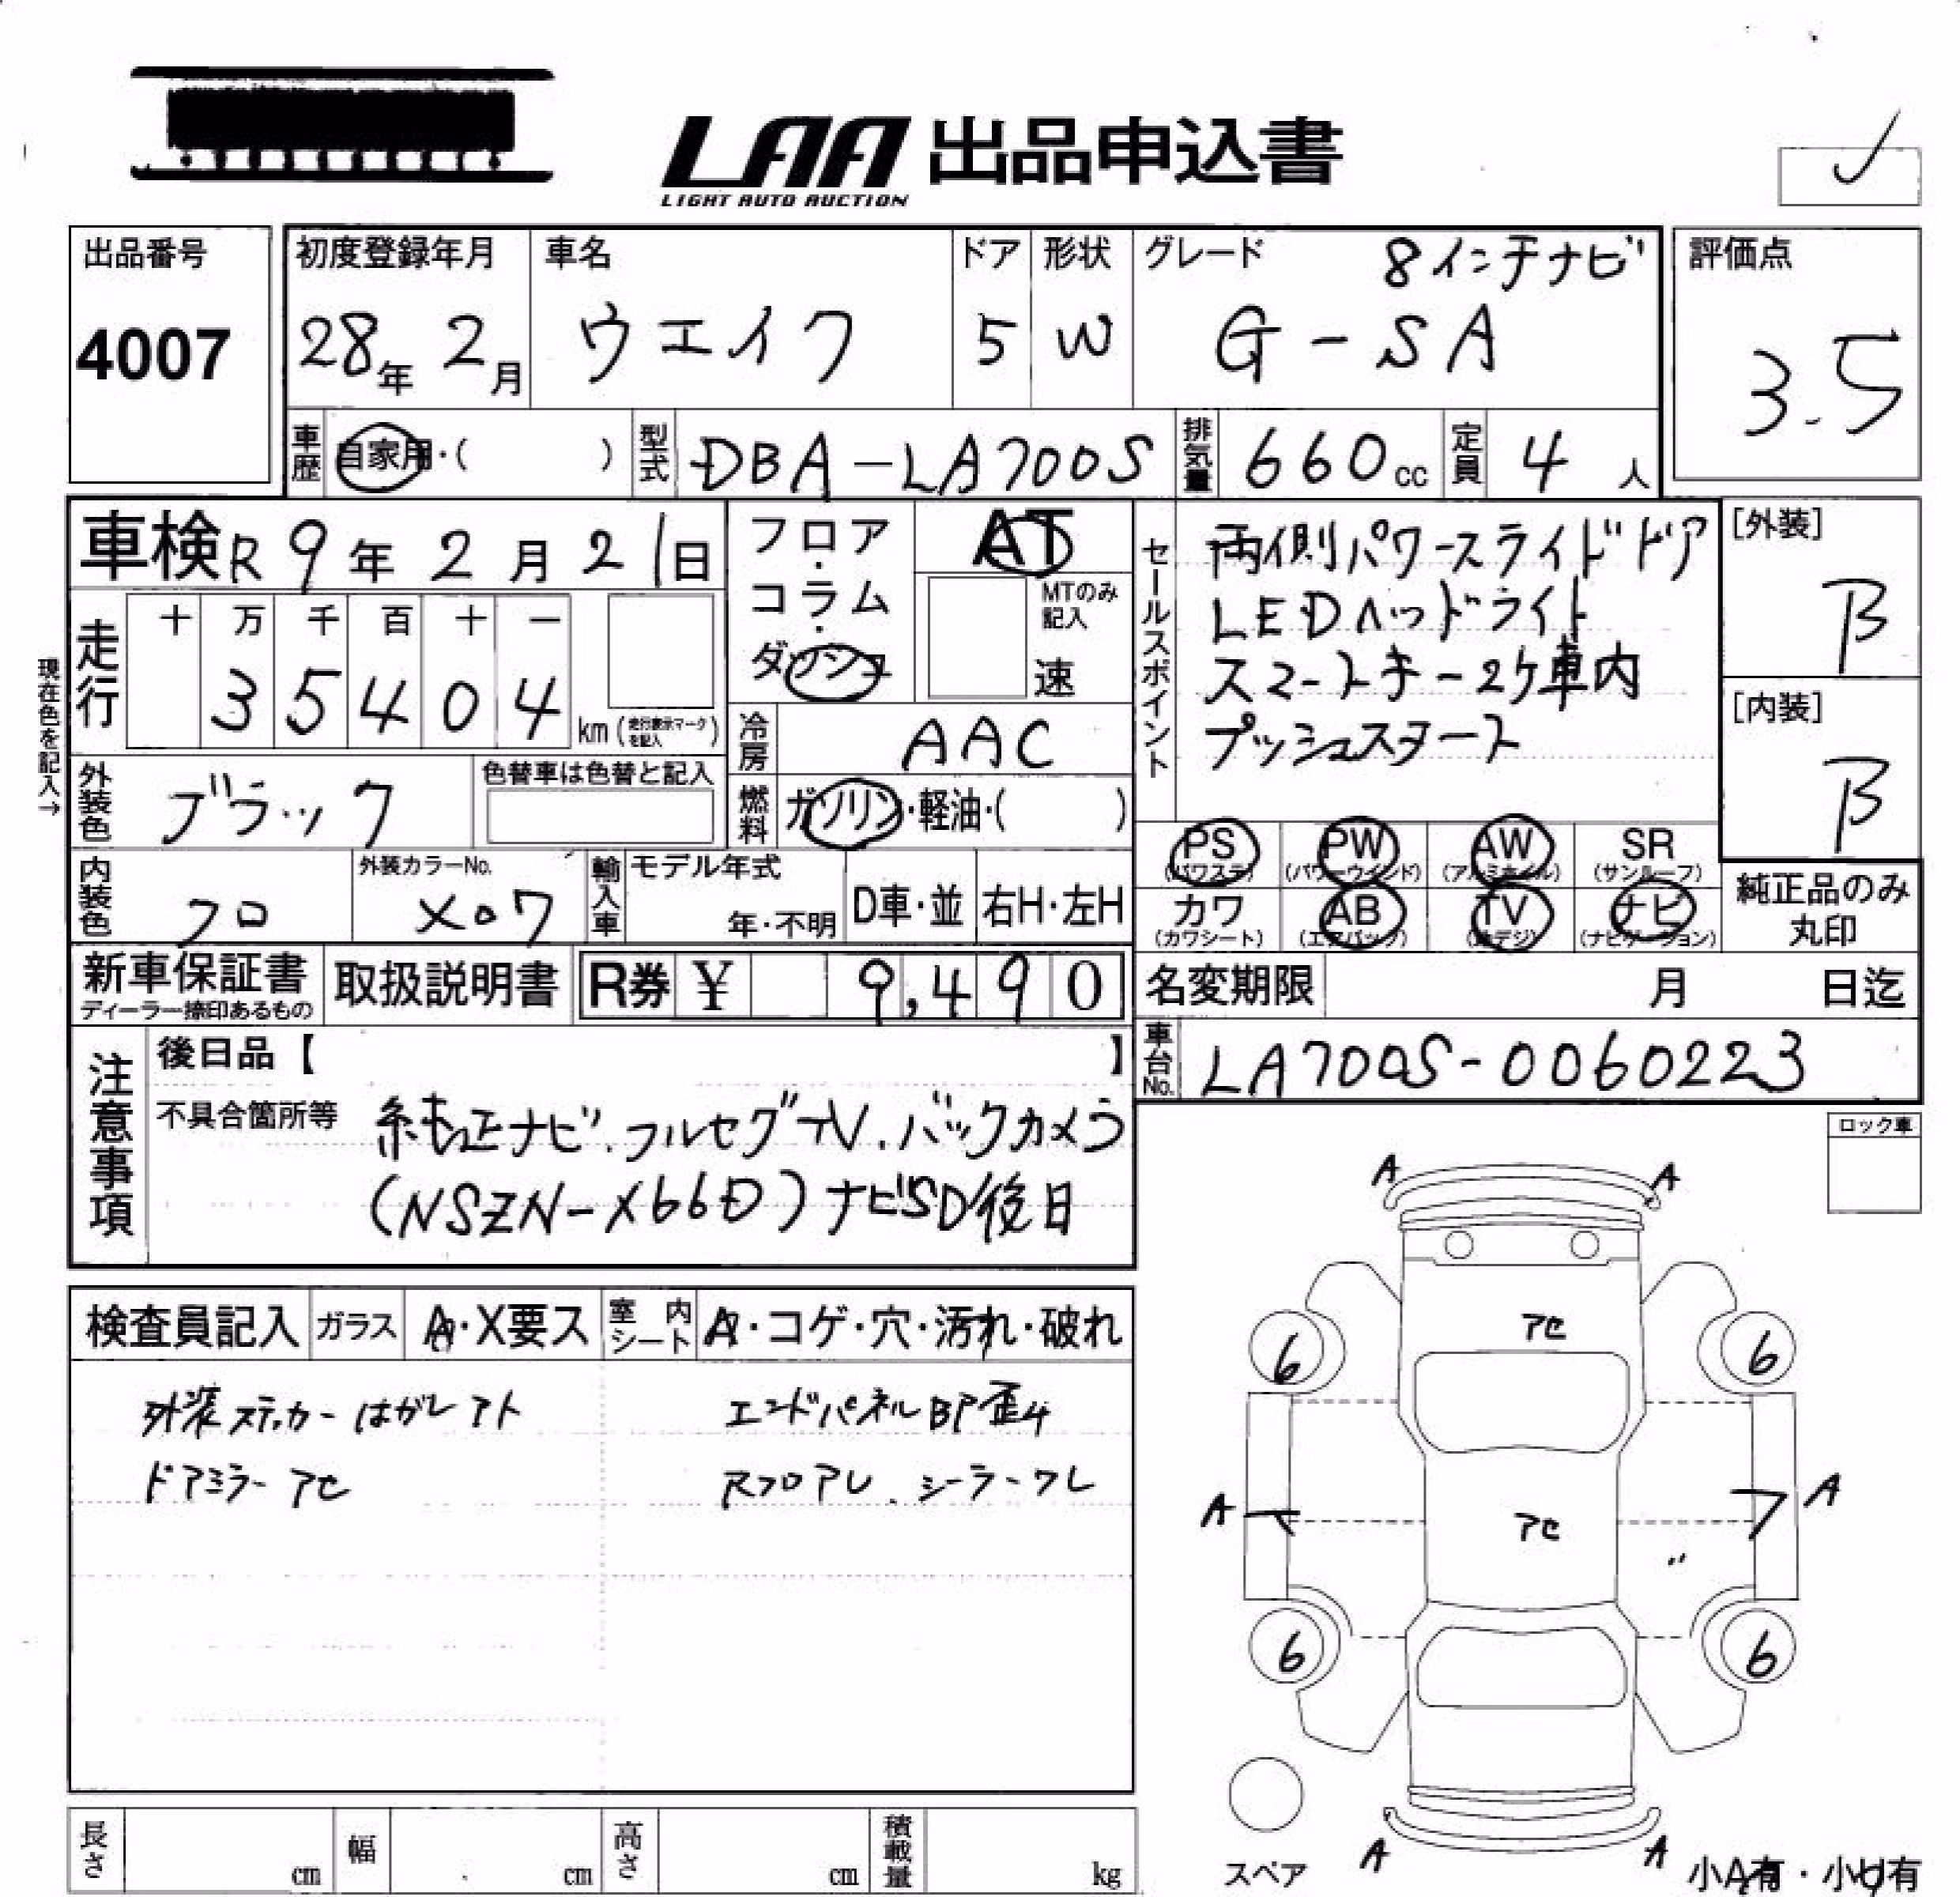 LAA 出品申込書
LIGHT AUTO AUCTION
出品番号
4007
初度登録年月
28年 2月
車名
ウエイク
ドア
5
形状
W
グレード
8インチナビ
G-SA
評価点
3.5
車歴
自家用・( )
型式
DBA-LA700S
排気量
660cc
定員
4人
車検 R9年2月21日
フロア・コラム・ダッシュ
AT
MTのみ記入
速
セールスポイント
両側パワースライドドア
LEDヘッドライト
スマートキー2ケ車内
プッシュスタート
[外装]
B
[内装]
B
現在色を記入→
走行
十 万 千 百 十 一
3 5 4 0 4
km (走行表示マークを記入)
冷房
AAC
外装色
ブラック
色替車は色替と記入
燃料
ガソリン・軽油・( )
PS (パワステ)
PW (パワーウインド)
AW (アルミホイル)
SR (サンルーフ)
カワ (カワシート)
AB (エアバック)
TV (地デジ)
ナビ (ナビゲーション)
純正品のみ
丸印
内装色
クロ
外装カラーNo.
X07
輸入車
モデル年式
年・不明
D車・並
右H・左H
新車保証書
ディーラー捺印あるもの
取扱説明書
R券 ¥ 9,490
名変期限 月 日迄
車台No.
LA700S-0060223
注意事項
後日品【 】
不具合箇所等
純正ナビ.フルセグTV.バックカメラ
(NSZN-X66D)ナビSD後日
ロック車
検査員記入
ガラス
A・X要ス
室内シート
A・コゲ・穴・汚れ・破れ
外装ステッカーはがレアト
ドアミラーアセ
エンドパネルBP歪4
RフロアU.シーラーワレ
A A
アセ
6 6
A A
アセ
〃
6 6
A A
スペア
小A有・小U有
長さ cm
幅 cm
高さ cm
積載量 kg